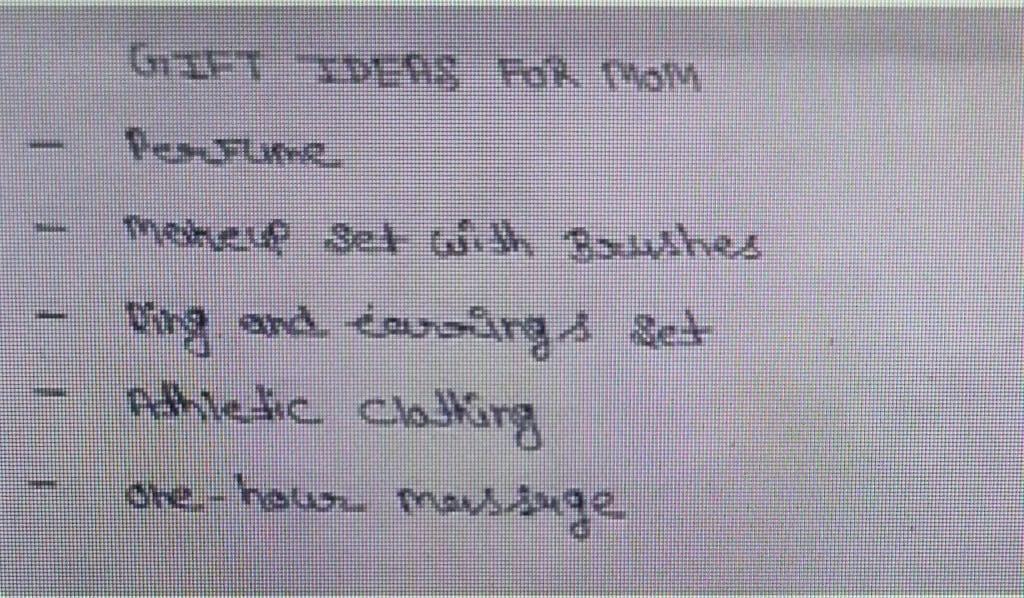 GIFT IDEAS FOR MOM
- Perfume
- Makeup set with Brushes
- Ring and earrings set
- Athletic Clothing
- One-hour massage